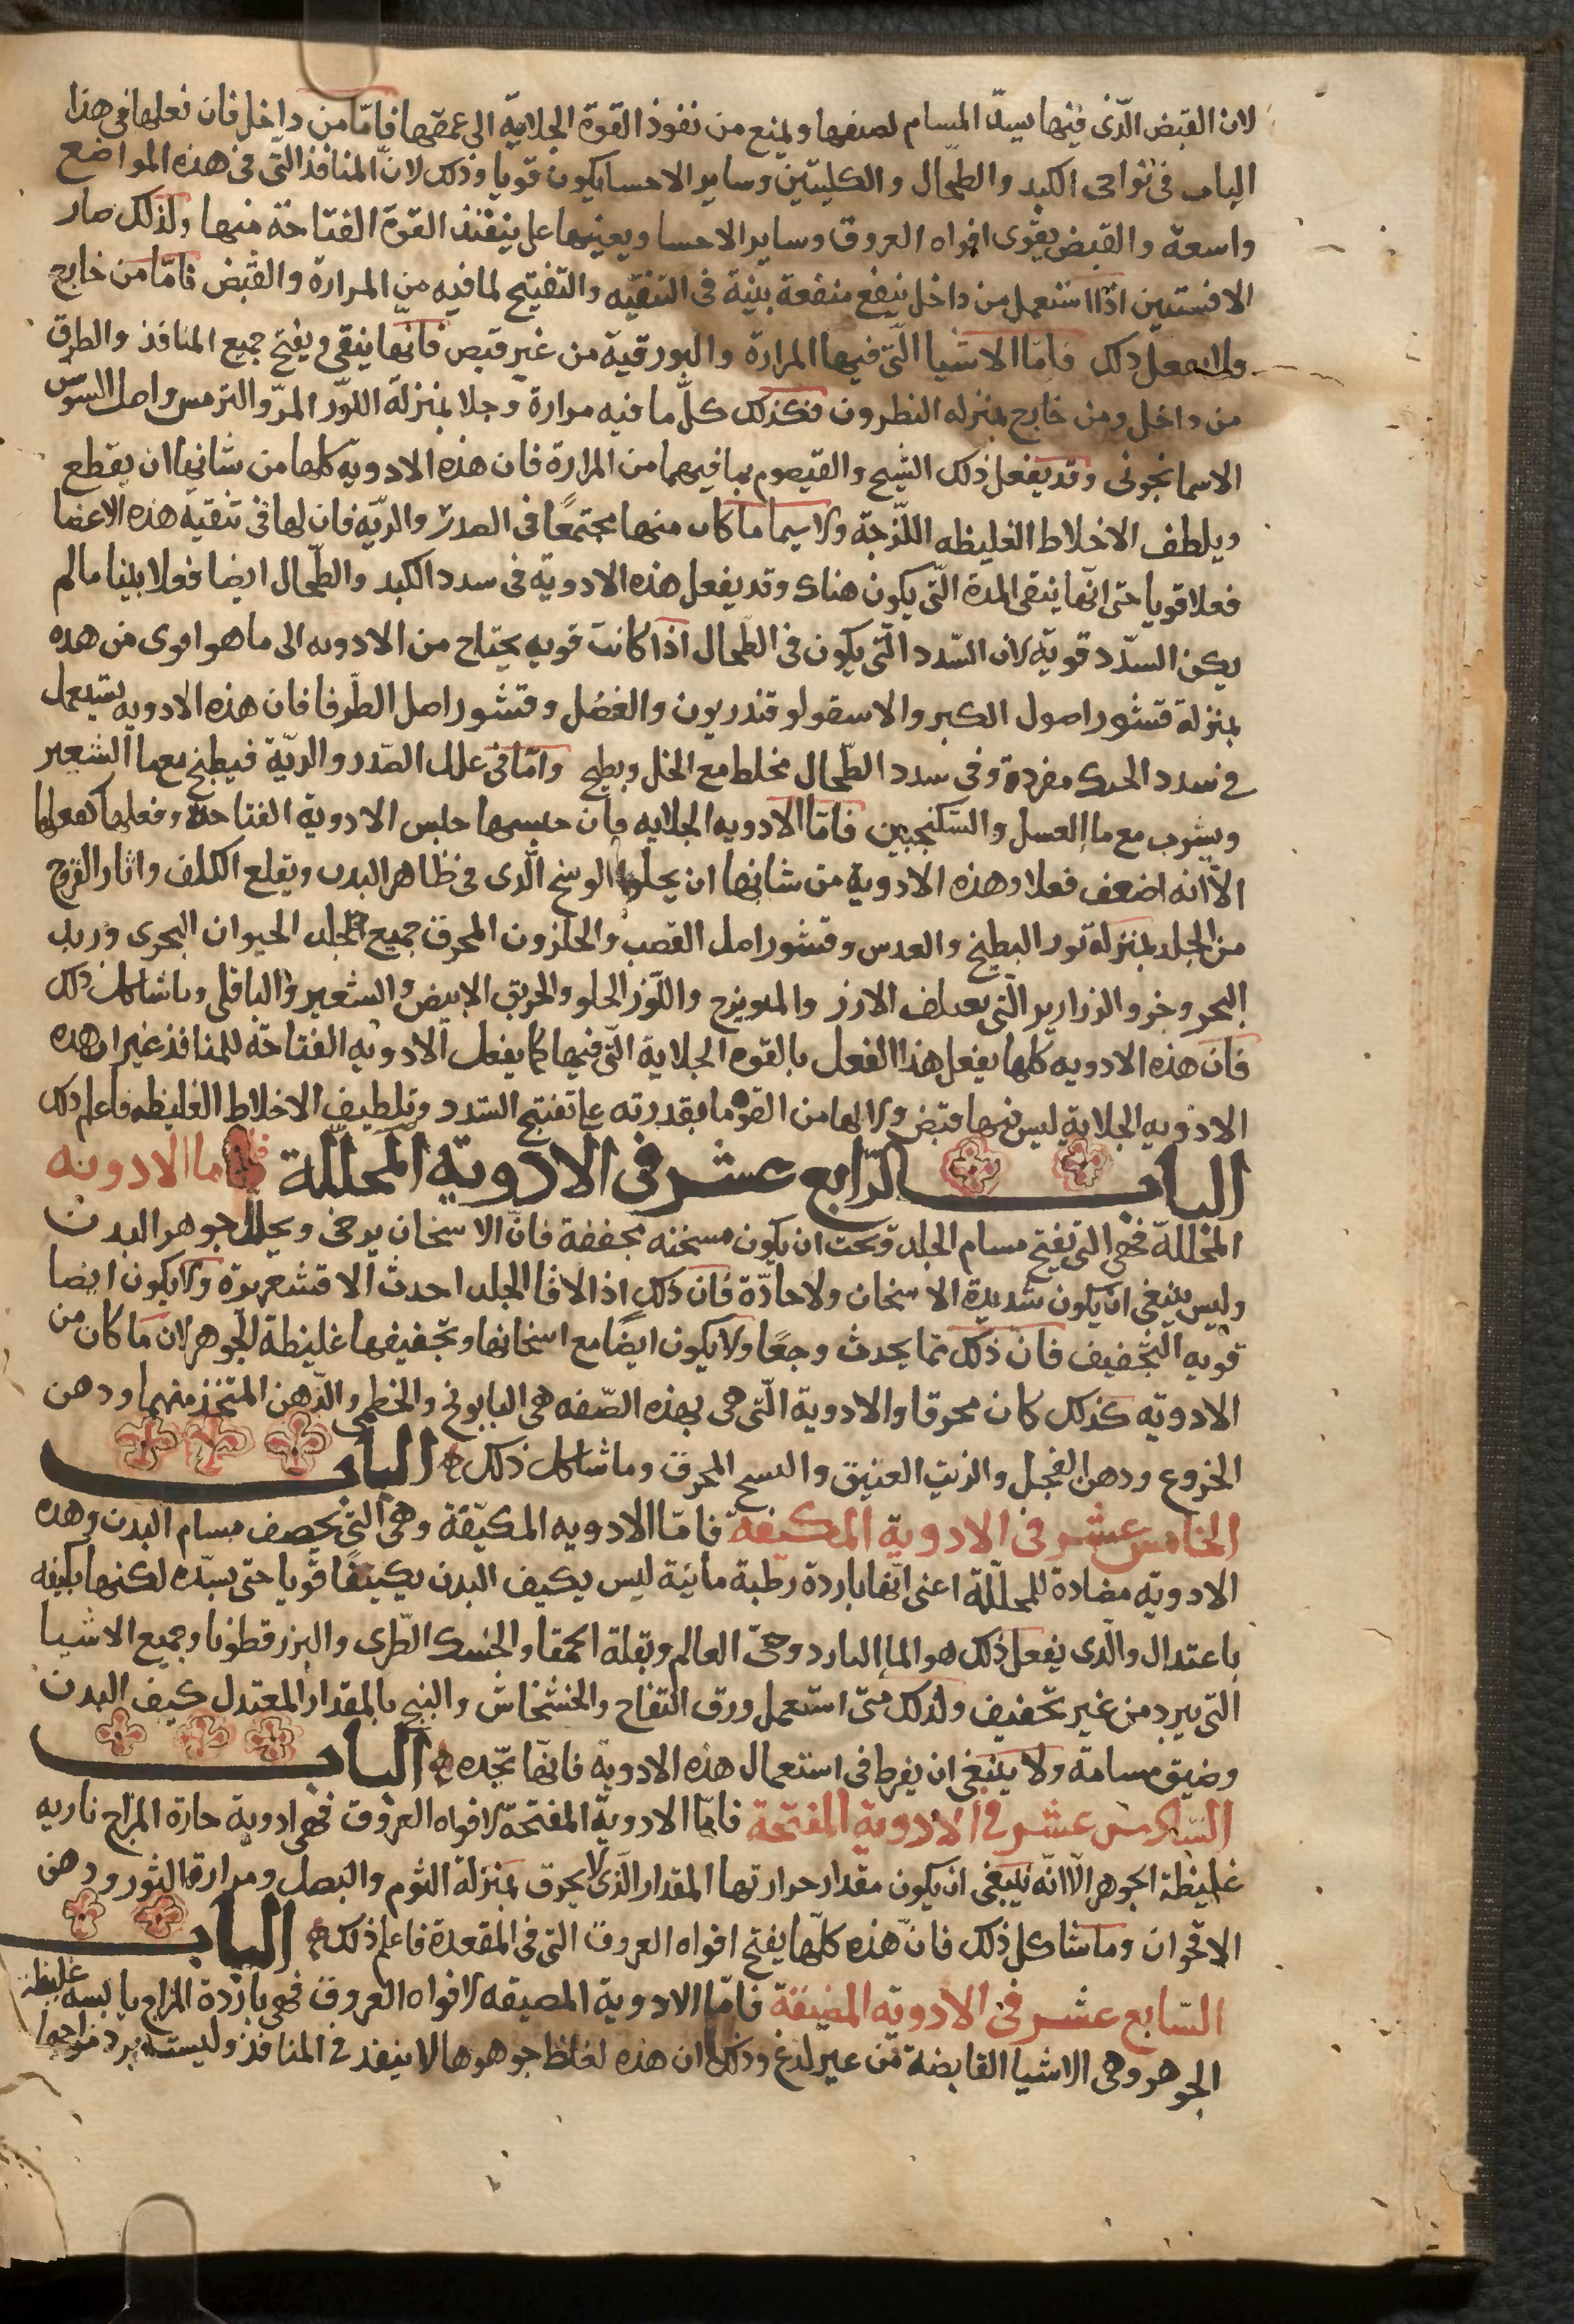 لان القبض الّذى فيها يسدّ المسام لضعفها ويمنع من نفوذ القوة الجلايّة الى عمقها فامّا من داخل فان فعلها فى هذا
الباب فى نواحى الكبد والطّحال والكليتين وساير الاحسا يكون قويا وذلك لانّ المنافذ التّى فى هذه المواضع
واسعة والقبض يقوى افواه العروق وساير الاحسا ويعينها على ينفذ القوة الفتاحة منها ولذلك صار
الافسنتين اذا استعمل من داخل ينفع منفعة بينة فى التنقيه والتفتيح لما فيه من المرارة والقبض فامّا من خارج
ولا يفعل ذلك فامّا الاشيا الّتى فيها المرارة والبورقية من غير قبض فانّها ينقى ويفتح جميع المنافذ والطرق
من داخل ومن خارج بمنزله النطرون فكذلك كلّ ما فيه مرارة وجلا بمنزلة اللوز المرّ والترمس واصل السوسن
الاسمانجونى وقد يفعل ذلك الشيح والقيصوم بما فيهما من المرارة فان هذه الادويه كلها من شانها ان يقطع
ويلطف الاخلاط الغليظه اللّزجة ولا سيما ما كان منها مجتمعًا فى الصدر والريّه فان لها فى تنقية هذه الاعضا
فعلا قويا حتى انّها ينقى المدة الّتى يكون هناك وقد يفعل هذه الادوية فى سدد الكبد والطّحال ايضا فعلا بينا ما لم
يكن السدّد قويّة لان السّدد الّتى يكون فى الطّحال اذا كانت قويه يحتاج من الادويه الى ما هو اقوى من هده
بمنزلة قشور اصول الكبر والاسقولوقندريون والغصُل وقشور اصل الطّرفا فان هذه الادويه يستعمل
فى سدد الكبد مفردة وفى سدد الطّحال يخلط مع الخل ويطبخ وامّا فى علل الصّدر والريّة فيطبخ مع ما الشعير
ويشرب مع ما العسل والسّكنجبين فامّا الادويه الجلايه فان جنسها جنس الادوية الفتاحة وفعلها كفعلها
الاّ انه اضعف فعلا وهذه الادوية من شانها ان يجلوا الوسخ الّذى فى ظاهر البدن ويقلع الكلف واثار القروح
من الجلد بمنزلة بزر البطيخ والعدس وقشور اصل القصب والحلزون المحرق جميع الجلد الحيوان البحرى وزبد
البحر وخرو الزرازير الّتى يعتلف الارز والميويزج واللّوز الحلو والخربق الابيض والشعير والباقلى وما شاكل ذلك
فان هذه الادويه كلها يفعل هذا الفعل بالقوه الجلاية الّتى فيها كما يفعل الادويه الفتاحّة للمنافذ غير ان هده
الادويه الجلاية ليس فيها قبض ولا لها من القوة ما يقدر به على تفتيح السّدد وتلطيف الاخلاط الغليظه فاعلم ذلك
الباب الرّابع عشر فى الادوية المحللّة فاما الادويه
المحللّة فهى التى تفتح مسام الجلد ويجب ان يكون مسخنه مجففة فانّ الاسخان يرخى ويحلل جوهر البدن
وليس ينبغى ان يكون شديدة الاسخان ولا حادّة فان ذلك اذا لاقا الجلد احدث الاقشعريرة ولا يكون ايضا
قويه التّجفيف فان ذلك مما يحدث وجعًا ولا يكون ايضًا مع اسخانها وتجفيفها غليظة الجّوهر لان ما كان من
الادويّه كذلك كان محرقا والادوية الّتى هى بهذه الصّفه هى البابونج والخطمى والدّهن المتخذ منهما ودهن
الخروع ودهن الفجل والزيت العتيق و المحرق وما شاكل ذلك الباب
الخامس عشر فى الادوية المكيفة فامّا الادويه المكيّفة وهى الّتى يحصف مسام البدن وهده
الادويّه مضادة للمحلّلة اعنى انّها باردة رطبة مائية ليس يكيف البدن يكييفًا قويا حتى يسدّه لكنها بكيفه
باعتدال والّذى يفعل ذلك هو الما البارد وحىّ العالم وبقلة الحمقا والحسك الطّرى والبزر قطونا وجميع الاشيا
التى يبرد من غير تجفيف ولذلك متى استعمل ورق التفاح والخشخاش والبنج بالمقدار المعتدل كيف البدن
وضيق مسامّه ولا ينبغى ان يفرط فى استعمال هذه الادوية فانّها تجّده الباب
السّادس عشر فى الادوية المفتحة فامّا الادويّة المفتحّة لافواه العروق فهى ادوية حارة المزاج ناريه
غليظة الجوهر الّا انّه ينبغى ان يكون مقدار حرارتها المقدار الّذى لا يحرق بمنزلة الثوم والبصل ومرارة الثور ودهن
الاقحوان وما شاكل ذلك فانّ هذه كلّها يفتح افواه العروق التى فى المقعدة فاعلم ذلك الباب
السّابع عشر فى الادويّه المضيقة فامّا الادوية المضيقه لافواه العروق فهى باردة المزاج يابسه غليظة
الجوهر وهى الاشيا القابضة من غير لدغ وذلك ان هذه لغلظ جوهرها لا ينفذ فى المنافذ وليست يبرد مزاجها